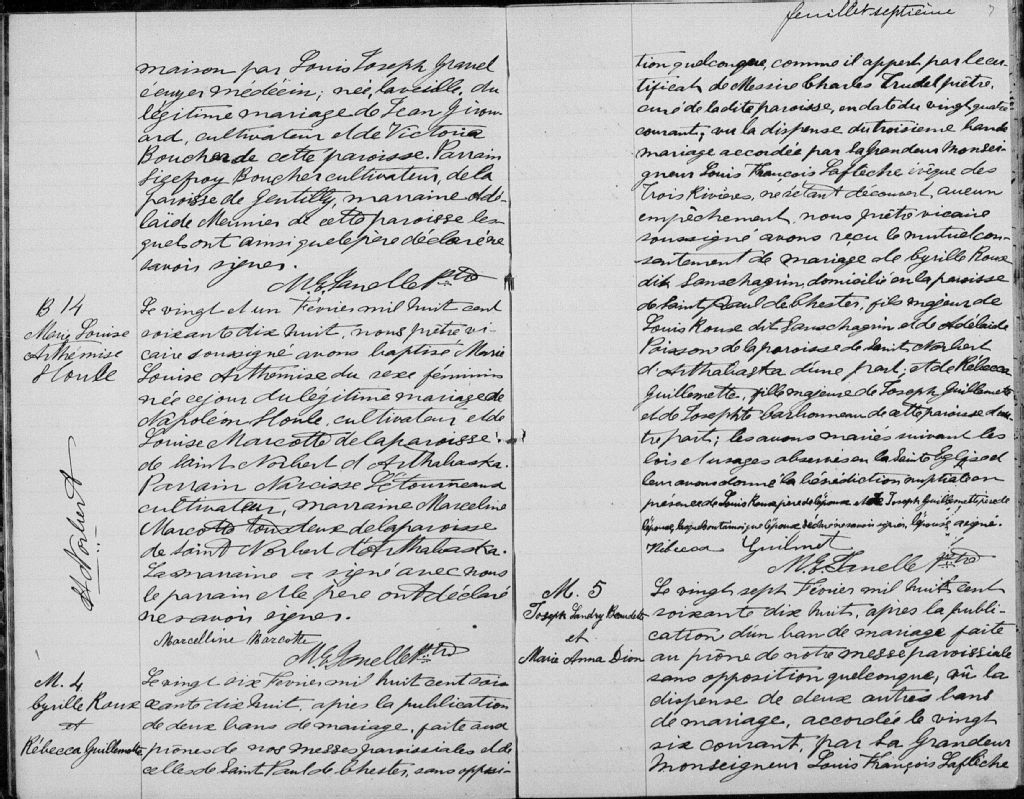 maison par Louis Joseph Gravel
écuyer médecin; née, la veille, du
légitime mariage de Jean Girou-
ard, cultivateur et de Victoria
Boucher de cette paroisse. Parrain
Sigefroy Boucher cultivateur, de la
paroisse de Gentilly, marraine Adé-
laïde Meunier de cette paroisse les-
quels ont ainsi que le père déclaré ne
savoir signer.
M. E. Janelle Ptre
B 14
Marie Louise
Arthémise
Houle
St Norbert
Le vingt et un Février mil huit cent
soixante dix huit, nous prêtre vi-
caire soussigné avons baptisé Marie
Louise Arthémise du sexe féminin
née ce jour du légitime mariage de
Napoléon Houle, cultivateur et de
Louise Marcotte de la paroisse
de Saint Norbert d'Arthabaska.
Parrain Narcisse Létourneau
cultivateur, marraine Marceline
Marcotte tous deux de la paroisse
de Saint Norbert d'Arthabaska.
La marraine a signé avec nous
le parrain et le père ont déclaré
ne savoir signer.
Marcelline Marcotte
M. E. Janelle Ptre
M. 4
Cyrille Roux
et
Rébecca Guillemette
Le vingt six Février mil huit cent soix-
xante dix huit, après la publication
de deux bans de mariage, faite aux
prônes de nos messes paroissiales et de
celles de Saint Paul de Chester, sans opposi-
feuillet septième
7
tion quelconque, comme il appert par le cer-
tificat de Messire Charles Trudel prêtre,
curé de la dite paroisse, en date du vingt quatre
courant; vu la dispense du troisième ban de
mariage accordée par Sa Grandeur Monsei-
gneur Louis François Laflèche évêque des
Trois Rivières, ne s'étant découvert aucun
empêchement, nous prêtre vicaire
soussigné avons reçu le mutuel con-
sentement de mariage de Cyrille Roux
dit Sanschagrin, domicilié en la paroisse
de Saint Paul de Chester, fils majeur de
Louis Roux dit Sanschagrin et de Adélaïde
Poisson de la paroisse de Saint Norbert
d'Arthabaska d'une part; et de Rébecca
Guillemette, fille majeure de Joseph Guillemette
et de Josephte Carbonneau de cette paroisse d'au-
tre part; les avons mariés suivant les
lois et usages observés en la Sainte Eglise et
leur avons donné la bénédiction nuptiale en
présence de Louis Roux père de l'époux et de Joseph Guillemette père de
l'épouse, lesquels ont ainsi que l'époux déclaré ne savoir signer, l'épouse a signé.
Rébecca Guilmet
M. E. Janelle Ptre
M. 5
Joseph Landry Beaudet
et
Marie Anna Dion
Le vingt sept Février mil huit cent
soixante dix huit, après la publi-
cation d'un ban de mariage faite
au prône de notre messe paroissiale
sans opposition quelconque, vû la
dispense de deux autres bans
de mariage, accordée le vingt
six courant, par Sa Grandeur
Monseigneur Louis François Laflèche